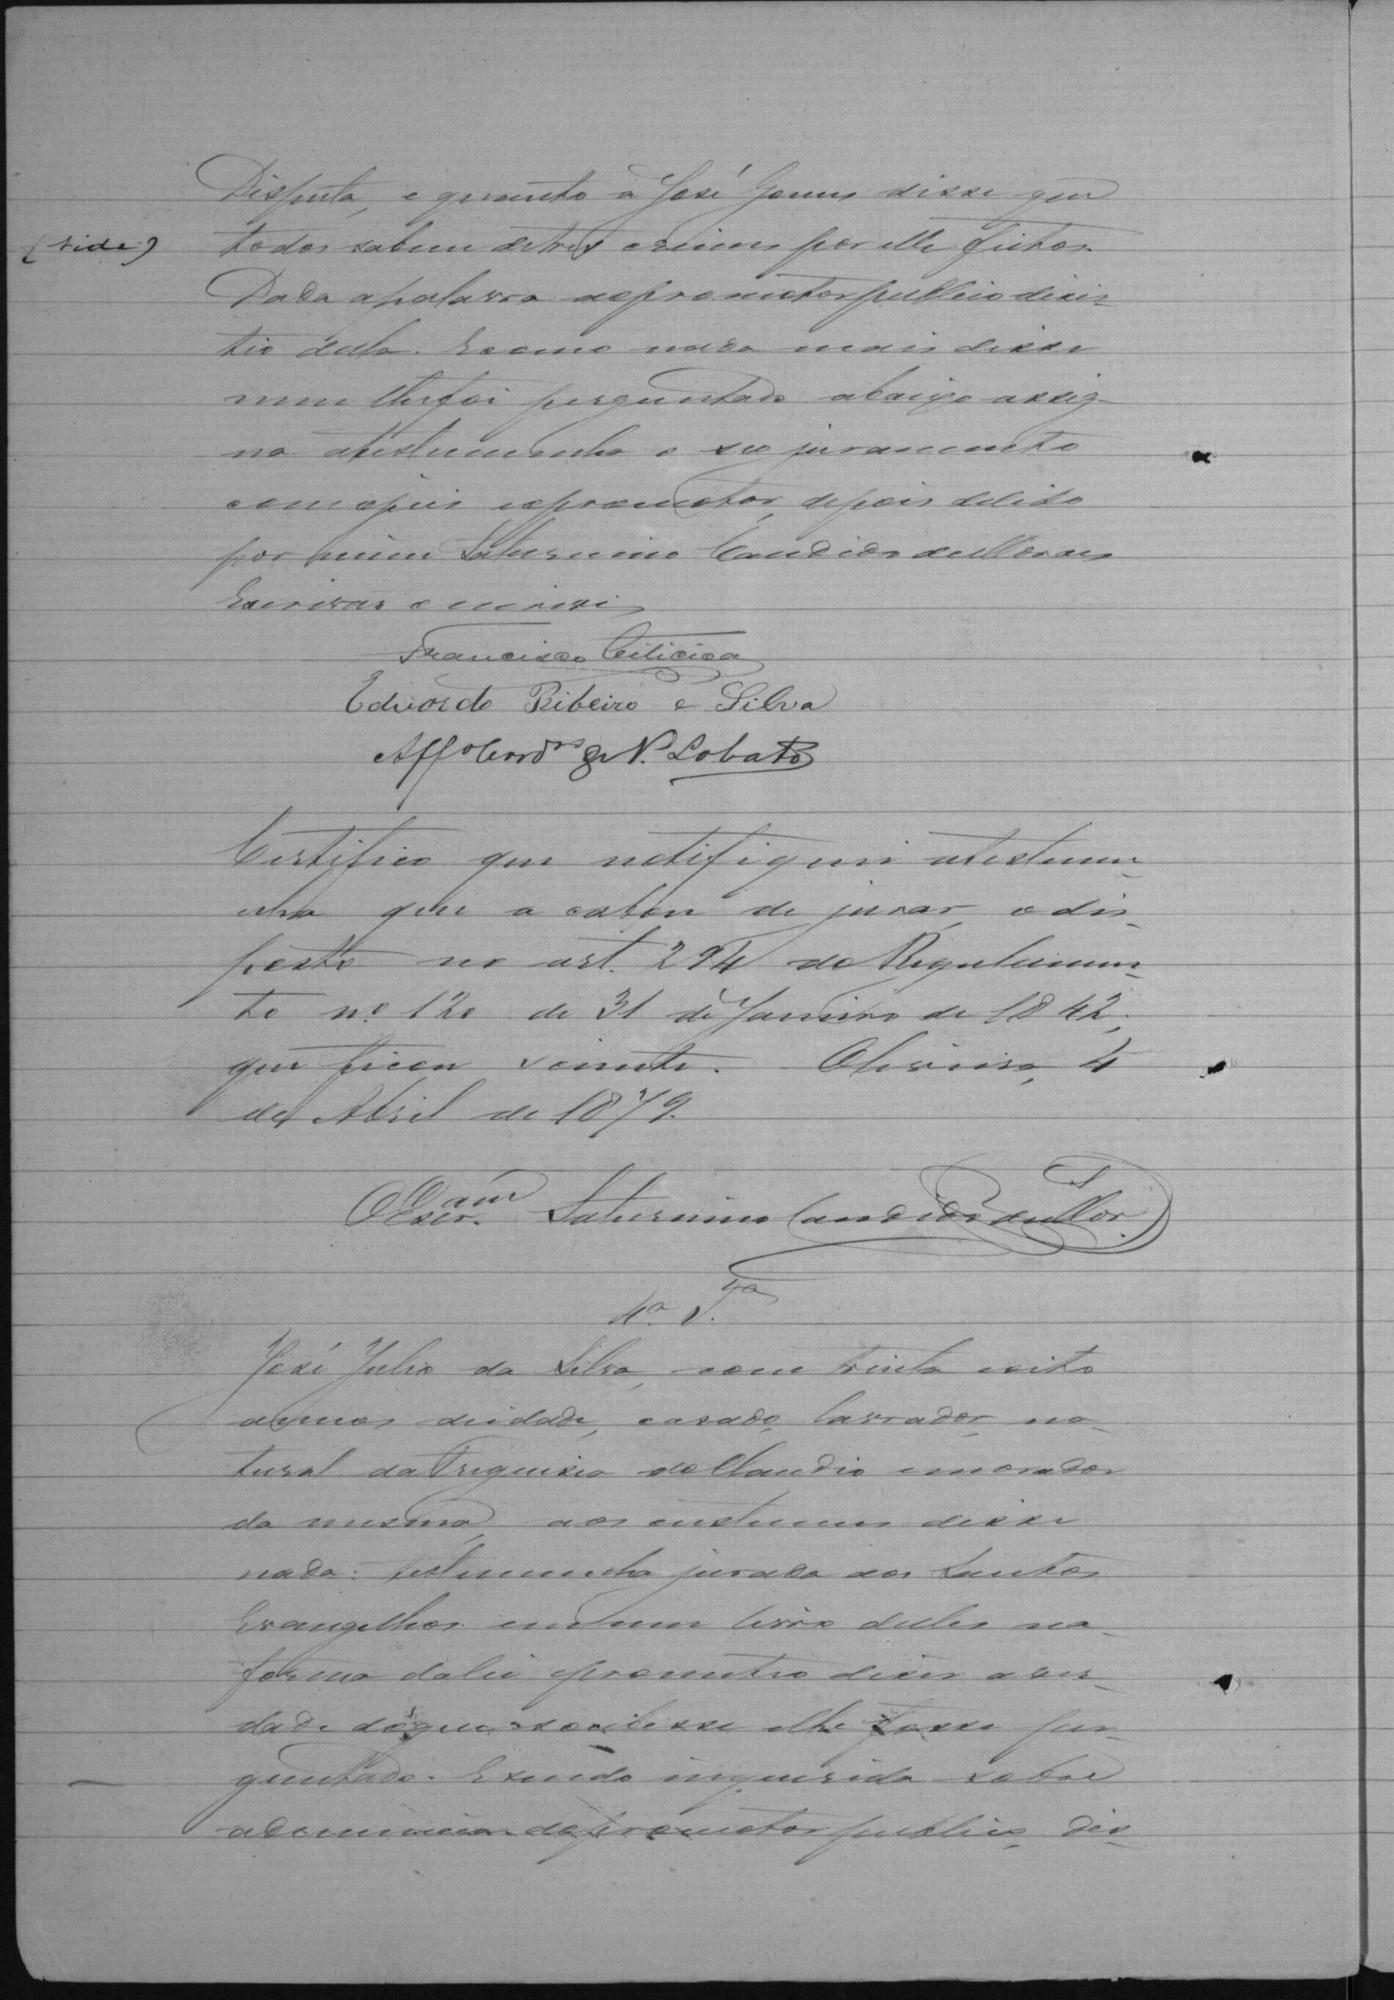 Disputa, e quanto à José Gomes disse que
(vide) todos sabem de tres crimes por elle feitos.
Dada a palavra ao promotor publico dezis-
tio della. E como nada mais disse
nem lhe foi perguntado abaixo assig-
na a testemunha o seo juramento
com o juis e o promotor, depois de lido
por mim Saturnino Candido de Moraes
Escrivão o escrevi
Francisco
Eduardo Ribeiro e Silva
Aff N. Lobato
Certifico que notifiquei a testemu-
nha que a cabou de jurar, o dis-
posto no art. 294 do Regulamen-
to nº 120 de 31 de Janeiro de 1842;
que ficou sciente. Oliveira, 4
de Abril de 1879.
O Escr.am Saturnino Candido de Mor.
4a T.a
José Julio da Silva, com trinta e oito
annos de idade, casado, lavrador, na-
tural da Freguisia do Claudio e morador
da mesma, aos custumes disse
nada: testemunha jurada aos Santos
Evangelhos em um livro delles na
forma da lei e prometteo dizer a ver-
dade do que soubesse e lhe fosse per-
guntado. E sendo inquerida sobre
a denuncia do promotor publico, dis-